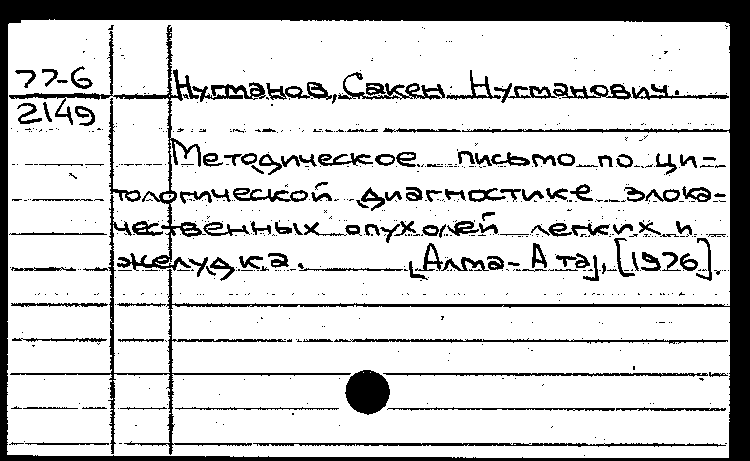 77-6
2149
Нугманов, Сакен Нугманович.
Методическое письмо по ци-
тологической диагностике злока-
чественных опухолей легких и
желудка. [Алма-Ата], [1976].